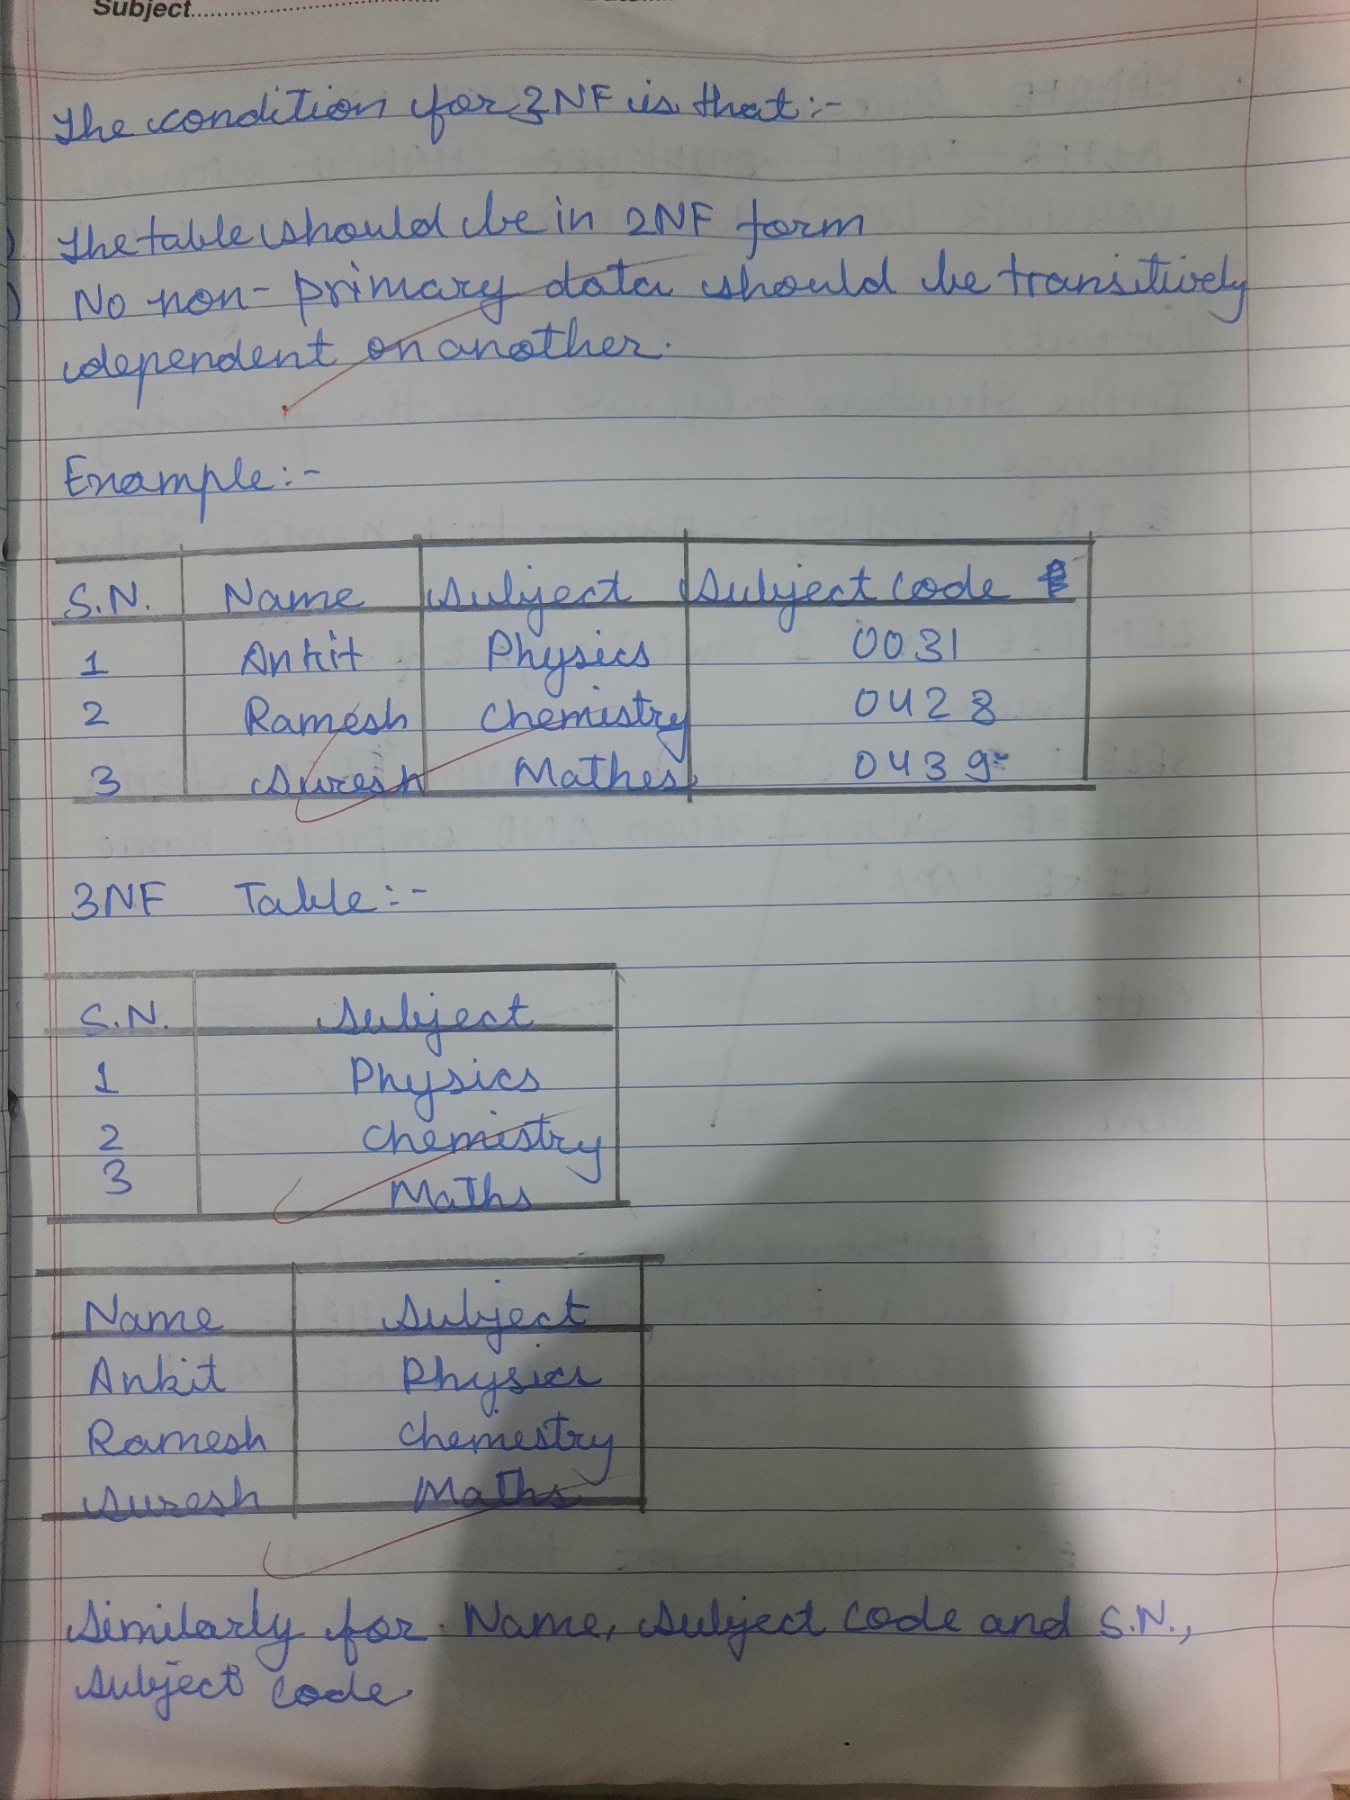 Subject
The condition for 3NF is that:-
The table should be in 2NF form
No non-primary data should be transitively
dependent on another.
Example:-
S.N. Name Subject Subject code
1 Ankit Physics 0031
2 Ramesh Chemistry 0428
3 Suresh Mathes 0439
3NF Table:-
S.N. Subject
1 Physics
2 Chemistry
3 Maths
Name Subject
Ankit Physics
Ramesh Chemestry
Suresh Maths
Similarly for Name, Subject code and S.N.,
Subject code